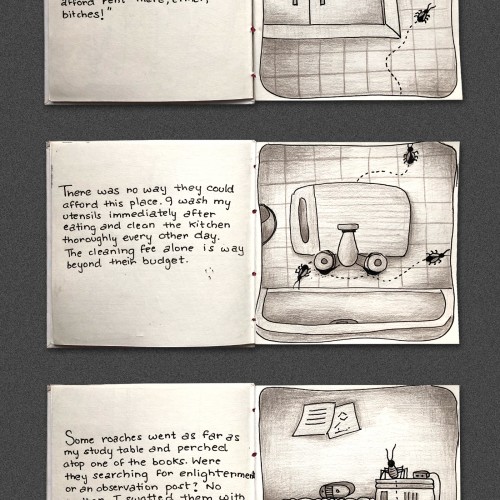 afford rent here, either,
bitches!"
There was no way they could
afford this place. I wash my
utensils immediately after
eating and clean the kitchen
thoroughly every other day.
The cleaning fee alone is way
beyond their budget.
Some roaches went as far as
my study table and perched
atop one of the books. Were
they searching for enlightenment
or an observation post? No
I swatted them with